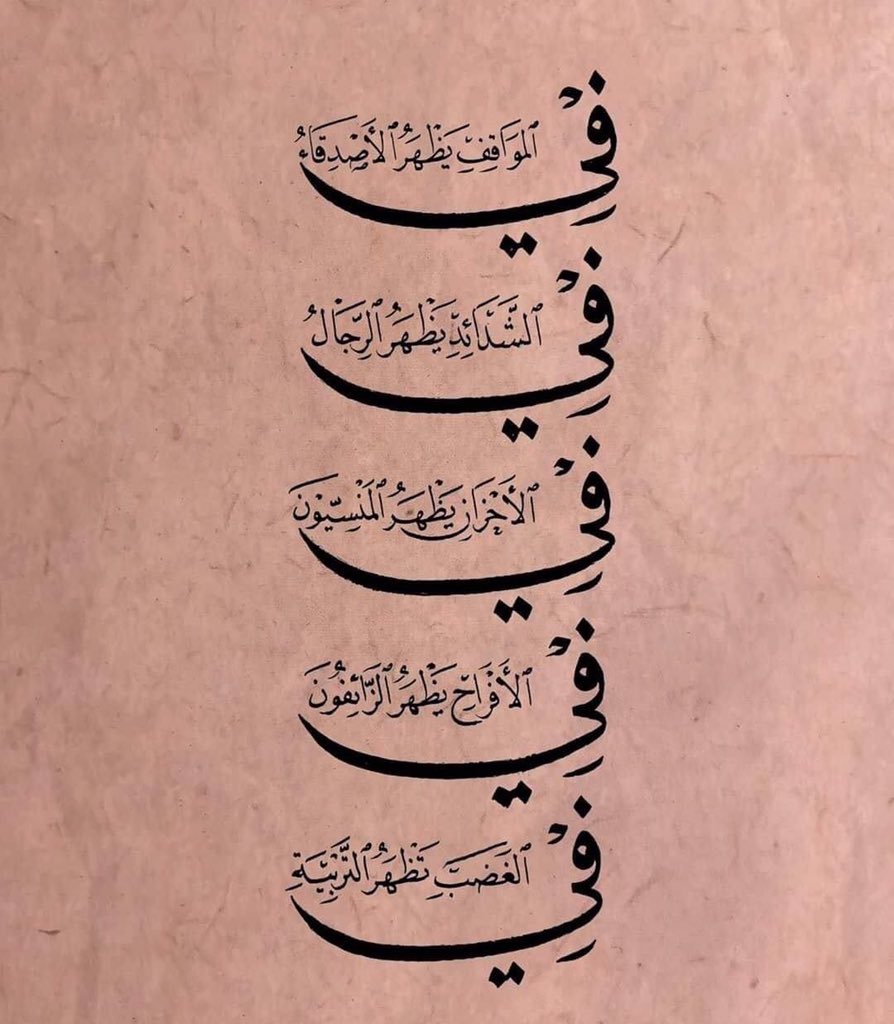 في المَوَاقِفِ يَظْهَرُ الأَصْدِقَاءُ
في الشَّدَائِدِ يَظْهَرُ الرِّجَالُ
في الأَحْزَانِ يَظْهَرُ المَنْسِيّوْنَ
في الأَفْرَاحِ يَظْهَرُ الزَّائِفُونَ
في الغَضَبِ تَظْهَرُ التَّرْبِيَةِ